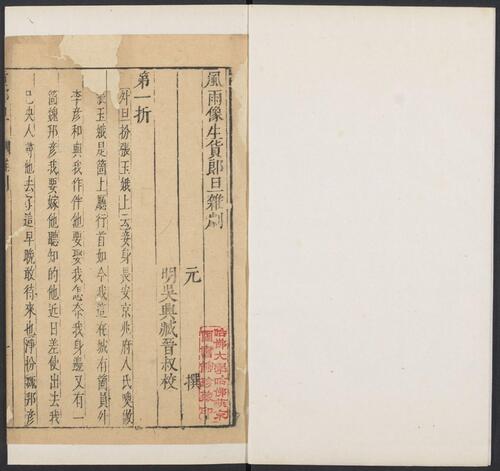 風雨像生貨郎旦雜劇
元 撰
明吳興臧晉叔校
第一折
外旦扮張玉娥上云妾身長安京兆府人氏喚做
張玉娥是箇上廳行首如今我這在城有箇員外
李彥和與我作伴他要娶我怎奈我身邊又有一
箇魏邦彥我要嫁他聽知的他近日差使出去我
已央人尋他去了這早晚敢待來也淨扮魏邦彥
哈佛大學哈佛燕京
圖書館珍藏印